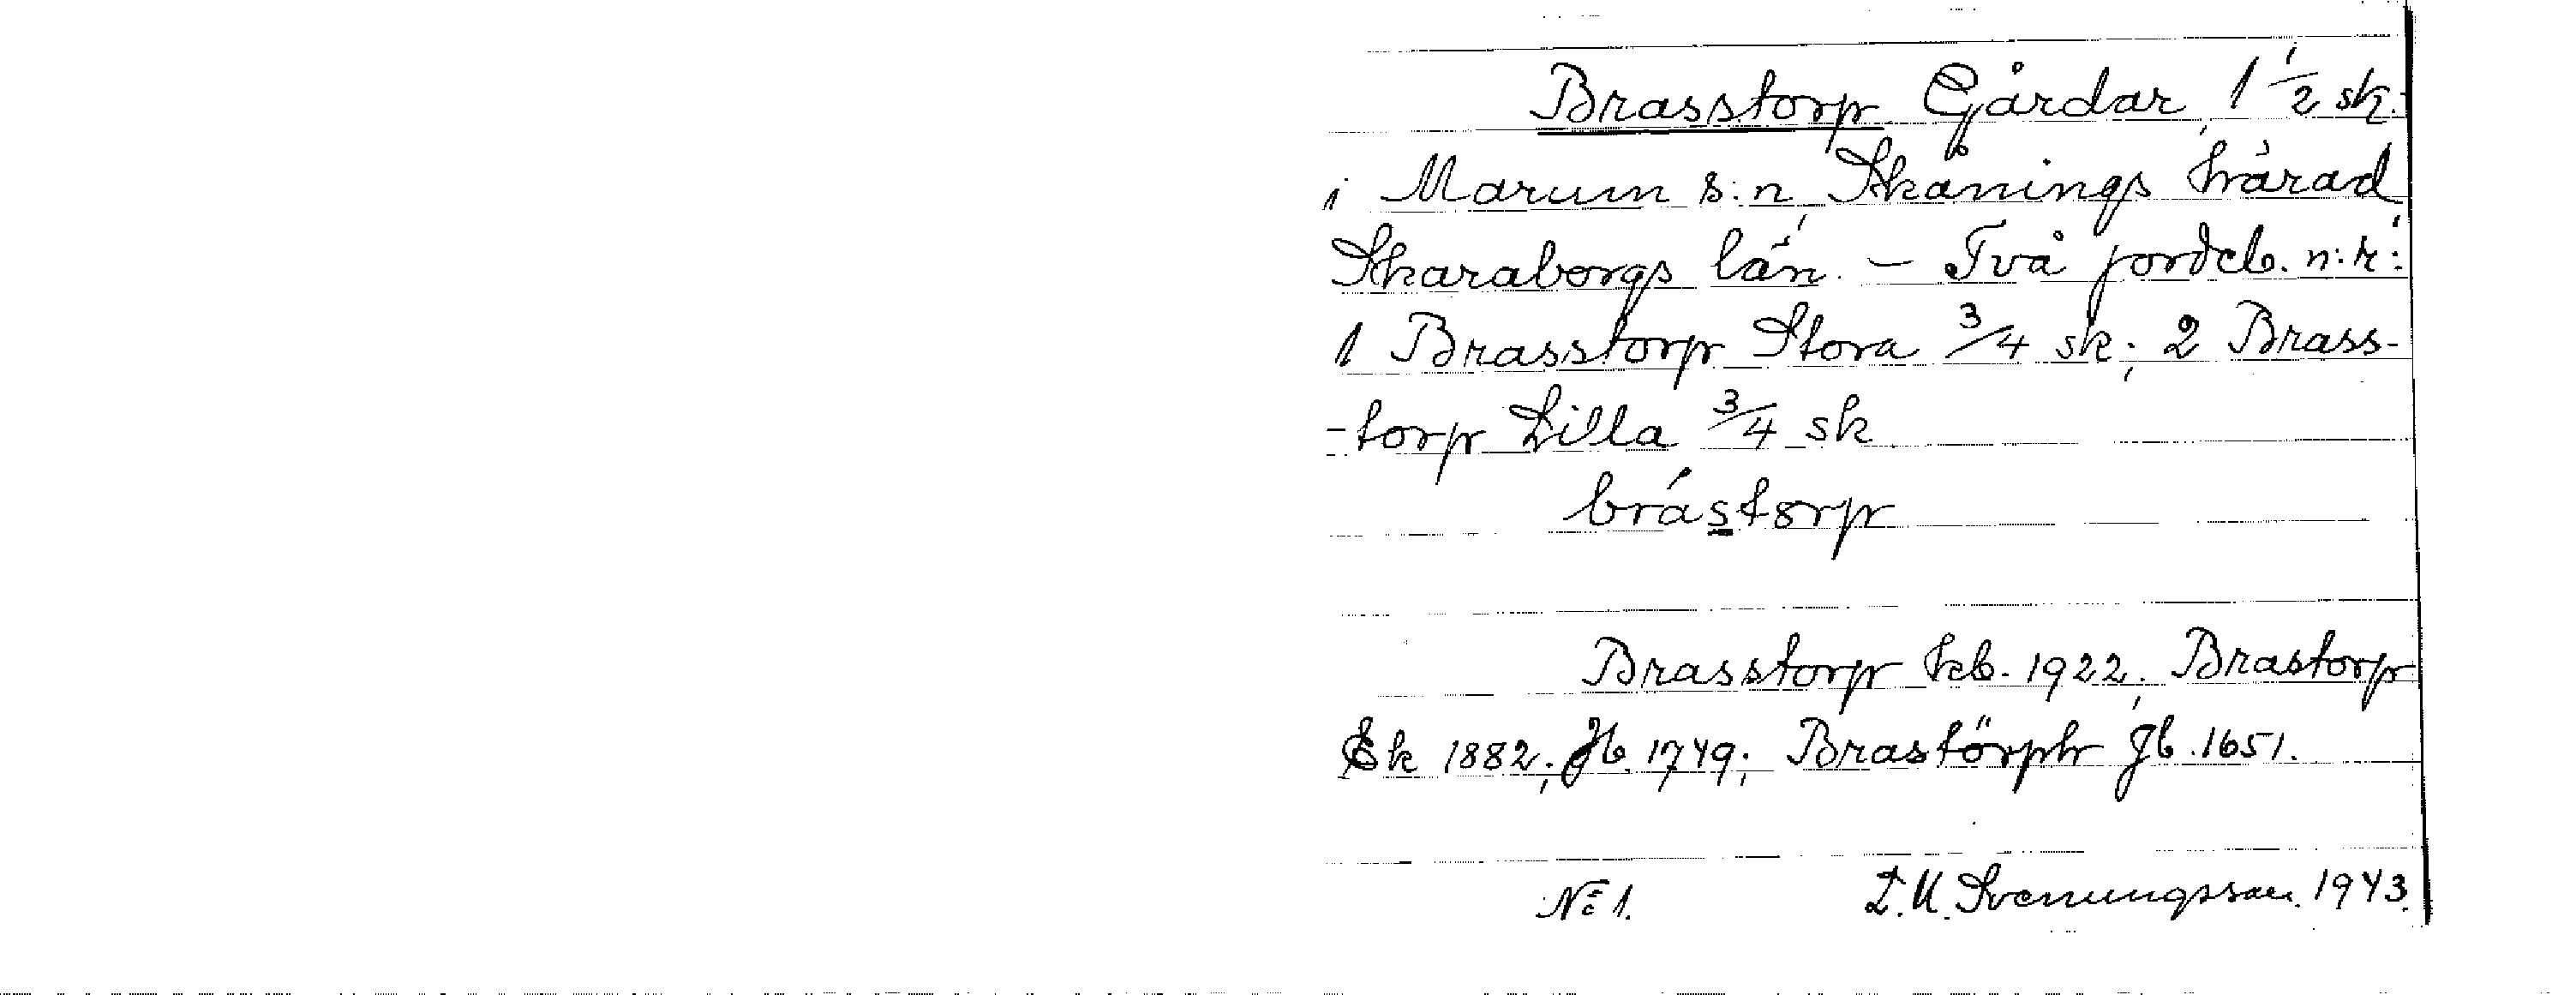 Brasstorp Gårdar, 1 1/2 sk.
i Marum s:n, Skånings härad,
Skaraborgs län. – Två jordeb. n:r:
1 Brasstorp Stora 3/4 sk; 2 Brass-
-torp Lilla 3/4 sk
brástorp
Brasstorp kb. 1922; Brastorp
Ek 1882; Jb. 1749; Brastörph Jb. 1651.
No 1. L.U. Svenungsson. 1943.